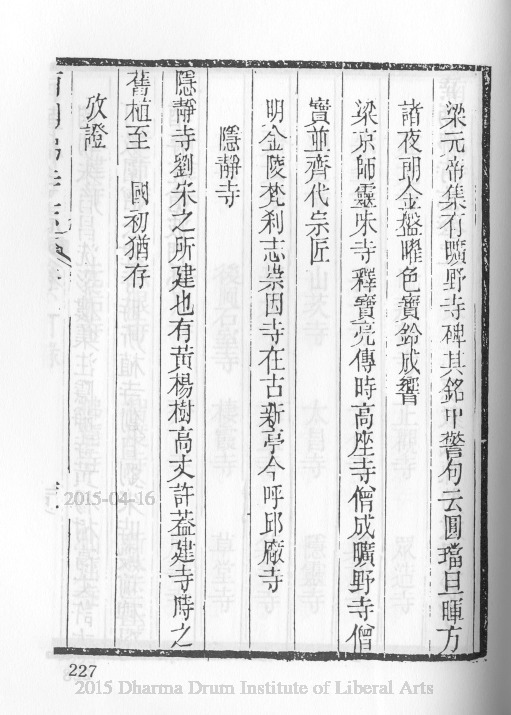 梁元帝集有曠野寺碑其銘中警句云圓璫旦暉方
諸夜朗金盤曜色寶鈴成響
梁京師靈味寺釋寶亮傳時高座寺僧成曠野寺僧
寶並齊代宗匠
明金陵梵刹志崇因寺在古新亭今呼邱廠寺
隱靜寺
隱靜寺劉宋之所建也有黃楊樹高丈許葢建寺時之
舊植至 國初猶存
攷證
2015-04-16
227
2015 Dharma Drum Institute of Liberal Arts